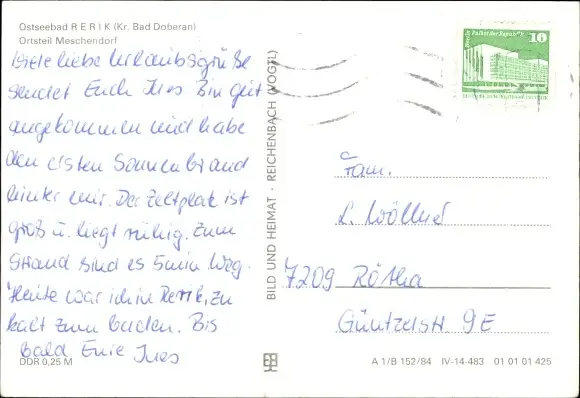 Ostseebad R E R I K (Kr. Bad Doberan)
Ortsteil Meschendorf
Viele liebe Urlaubsgrüße
sendet Euch Ines Bin gut
angekommen und habe
den ersten Sonnenbrand
hinter mir. Der Zeltplatz ist
groß u. liegt ruhig. Zum
Strand sind es 5min Weg.
Heute war ich in Rerik, zu
kalt zum baden. Bis
bald Eure Ines
DDR 0,25 M
BILD UND HEIMAT · REICHENBACH (VOGTL)
Berlin, Palast der Republik 10
Fam.
L. Wöllner
7209 Rötha
Güntzelstr 9E
A 1/B 152/84 IV-14-483 01 01 01 425